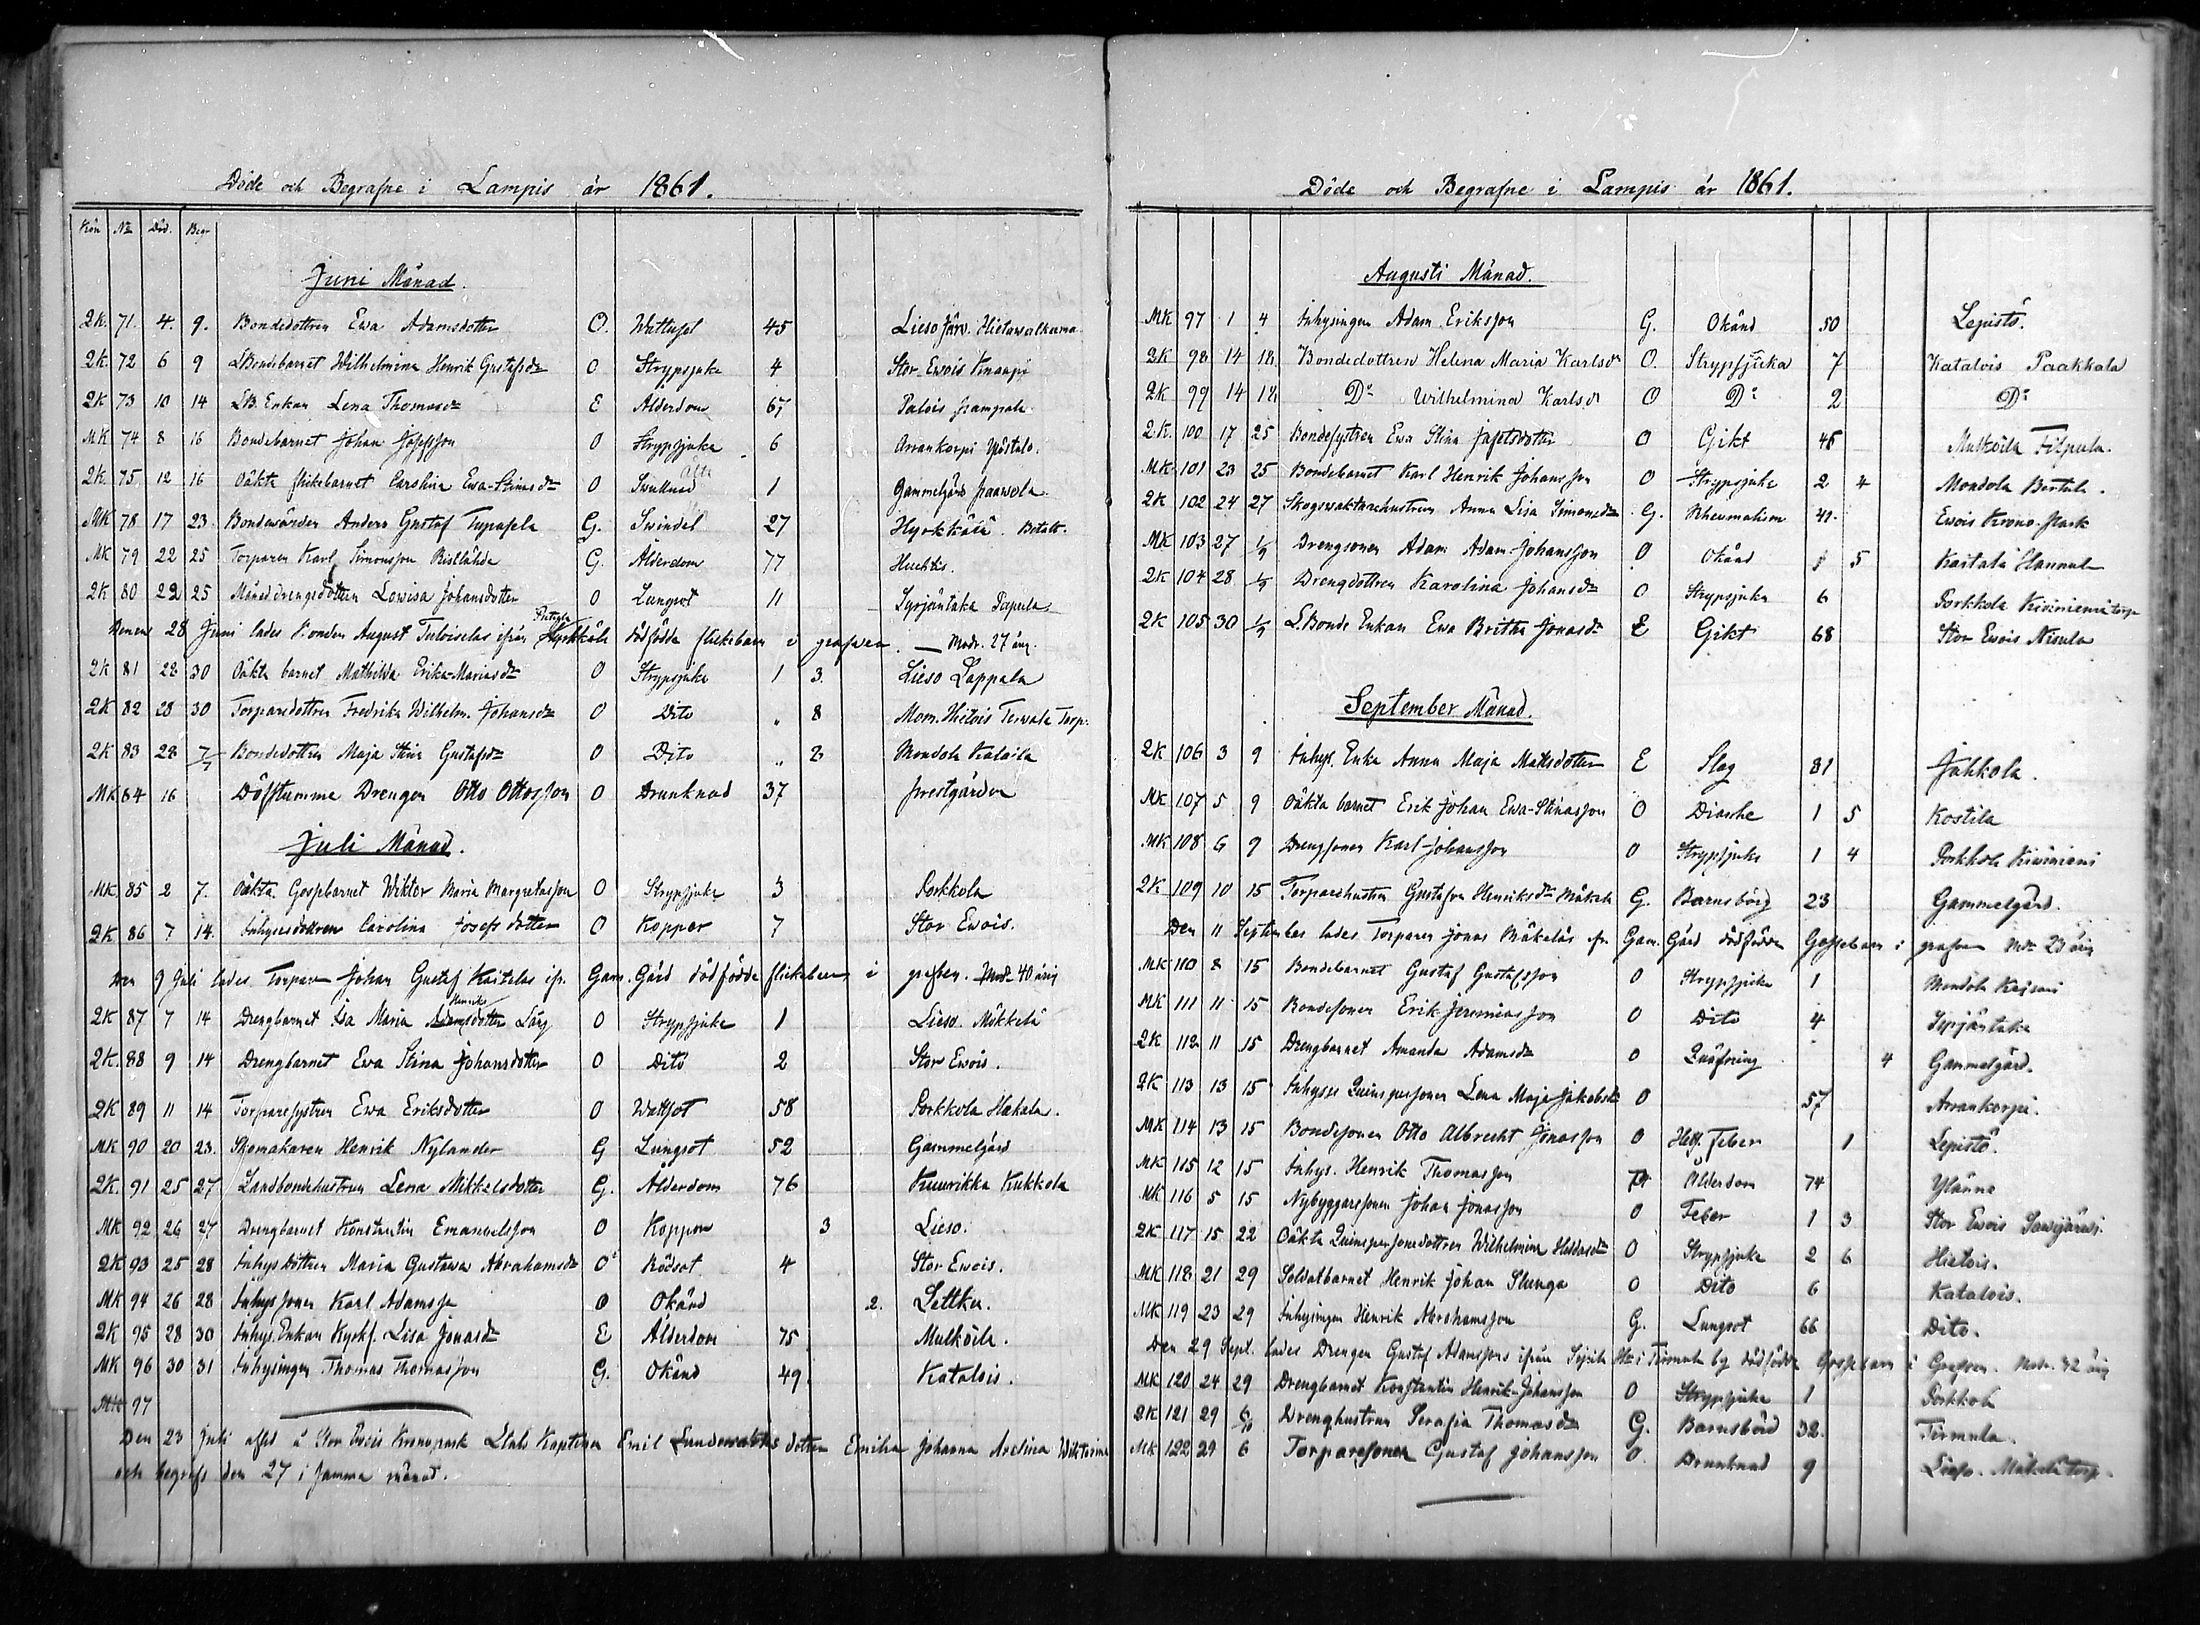 Döde och Begrafne i Lampis år 1861.
Kön No Död. Begr
Juni Månad.
QK. 71. 4. 9. Bondedottren Ewa Adamsdotter O. Wattusot 45 Lieso Järv. Hietawalkama
QK. 72 6 9 LBondebarnet Wilhelmina Henrik Gustafsdr O Strypsjuka 4 Stor Ewois Knaapi
QK 73 10 14 LB. Enkan Lena Thomasdr E Ålderdom 67 Palois
MK 74 8 16 Bondebarnet Johan Josefsson O Strypsjuka 6 Arrankorpi
QK. 75 12 16 Oäkta flickebarnet Carolina Ewa-Stinasdr O Swullnad 1 Gammelgård Paawola
MK 78 17 23 Bondewärden Anders Gustaf G. Swindel 27 Hyrkkälä
MK 79 22 25 Torparen Karl Simonsson Ristlähde G. Ålderdom 77 Huhtis.
QK 80 22 25 Måneddrengsdottren Lowisa Johansdotter O Lungsot 11 Syrjäntaka Papula
Denen 28 Juni lades Bonden August Tuloiselas ifrån Hyrkkälä dödfödda flickebarn i grafwen. Modr. 27 årig.
QK 81 28 30 Oäkta barnet Mathilda Erika-Mariasdr O Strypsjuka 1 3. Lieso Lappala
QK 82 28 30 Torparedottren Fredrika Wilhelm. Johansdr O Dito " 8 Mom. Hietois Terwala Torp.
QK 83 28 7/7 Bondedottren Maja Stina Gustafsdr O Dito " 3 Mondola Kalaila
MK 84 16 Döfstumme Drengen Otto Ottosson O Drunknad 37 Prestgården
Juli Månad.
MK. 85 2 7. Oäkta Gossebarnet Wiktor Maria Margretasson O Strypsjuka 3 Porkkola
QK 86 7 14. Inhysesdottren Carolina Josefsdotter O Koppor 7 Stor Ewois.
Den 9 Juli lades Torparen Johan Gustaf Kaitalas ifr. Gam. Gård dödfödda flickebarn i grafwen. Modr 40 årig
QK 87 7 14 Drengbarnet Ida Maria Henriks Adamsdotter Lärj O Strypsjuka 1 Lieso Mikkelä
QK. 88 9 14 Drengbarnet Ewa Stina Johansdotter O Dito 2 Stor Ewois.
QK 89 11 14 Torparesystren Ewa Eriksdotter O Wattsot 58 Porkkola Hakala.
MK 90 20 23. Skomakaren Henrik Nylander G Lungsot 52 Gammelgård
QK. 91 25 27 Landbondehustrun Lena Mikkelsdotter G. Ålderdom 76 Kuurikka Kukkola
MK 92 26 27 Drengbarnet Konstantin Emanuelsson O Koppor 3 Lieso.
QK 93 25 28 Inhysdottren Maria Gustawa Abrahamsdr O Rödsot 4 Stor Ewois.
MK 94 26 28 Inhyssonen Karl Adamsson O Okänd 2. Lettku.
QK 95 28 30 Inhys. Enkan Kyrkf. Lisa Jonasdr E Ålderdom 75 Mulkoila.
MK 96 30 31 Inhysingen Thomas Thomasson G. Okänd 49. Katalois.
MK 97
Den 23 Juli afled å Stor Evois Kronopark Stabs Kaptenen Emil Lundewalds dotter Emilia Johanna Arelina Wiktorina
och begrofs den 27 i samma månad.
Döde och Begrafne i Lampis år 1861.
Augusti Månad.
MK 97 1 4 Inhysingen Adam Eriksson G. Okänd 50 Lepistö.
QK 98 14 18 Bondedottren Helena Maria Karlsdr O. Strypsjuka 7 Katalois Paakkala
QK 99 14 18 Do Wilhelmina Karlsdr O Do 2 Do
QK. 100 17 25 Bondesystren Ewa Stina Josefsdotter O Gikt 45 Mulkoila Filpula.
MK. 101 23 25 Bondebarnet Karl Henrik Johansson O Strypsjuka 2 4 Mondola Bertula.
QK 102 24 27 Skogswaktarehustrun Anna Lisa Simonsdr G. Rheumatism 41 Ewois Krono-Park
MK 103 27 1/9 Drengsonen Adam Adam-Johansson O Okänd 5 Kaitala Hannula
QK 104 28 1/9 Drengdottren Karolina Johansdr O Strypsjuka 6 Porkkola Kiviniemi torp
QK 105 30 1/9 L.Bonde Enkan Ewa Britha Jonasdr E Gikt 68 Stor Ewois Nisula
September Månad.
QK 106 3 9 Inhys. Enka Anna Maja Mattsdotter E Slag 81 Jahkola.
MK 107 5 9 Oäkta barnet Erik Johan Ewa-Stinasson O Diarrhe 1 5 Kostila
MK 108 6 9 Drengsonen Karl-Johansson O Strypsjuka 1 4 Porkkola Kiviniemi
QK 109 10 15 Torparehustrun Gustafva Henriksdr Mäkelä G. Barnsbörd 23 Gammelgård.
Den 11 September lades Torparen Jonas Mäkeläs fr. Gam. Gård dödfödda Gossebarn i grafwen Modr 23 årig
MK 110 8 15 Bondebarnet Gustaf Gustafsson O Strypsjuka 1 Mondola
MK 111 11 15 Bondesonen Erik Jeremiasson O Dito 4 Syrjäntaka
QK 112 11 15 Drengbarnet Amanda Adamsdr O Quäfning 4 Gammelgård.
QK 113 13 15 Inhyses Quinspersonen Lena Maja Jakobsdr O 57 Arrankorpi.
MK 114 13 15 Bondesonen Otto Albrecht Jonasson O Hets. Feber 1 Lepistö.
MK 115 12 15 Inhys. Henrik Thomasson Ålderdom 74 Ylänne
MK 116 5 15 Nybyggaresonen Johan Jonasson O Feber 1 3 Stor Ewois Sawijärwi
QK 117 15 22 Oäkta Quinspersonsdottren Wilhelmina Heddasdr O Strypsjuka 2 6 Hietois.
MK 118 21 29 Soldatbarnet Henrik Johan Slunga O Dito 6 Katalois.
MK 119 23 29 Inhysingen Henrik Abrahamsson G. Lungsot 66 Dito.
Den 29 Sept. lades Drengen Gustaf Adamssons ifrån i Tirmula by dödfödda Gossebarn i Grafwen. Modr. 32 årig
MK 120 24 29 Drengbarnet Konstantin Henrik-Johansson O Strypsjuka 1 Porkkola
QK 121 29 6/10 Drenghustrun Serafia Thomasdr G. Barnsbörd 32. Tirmula.
MK 122 29 6 Torparesonen Gustaf Johansson O. Drunknad 9 Lieso. Mäkelä torp.